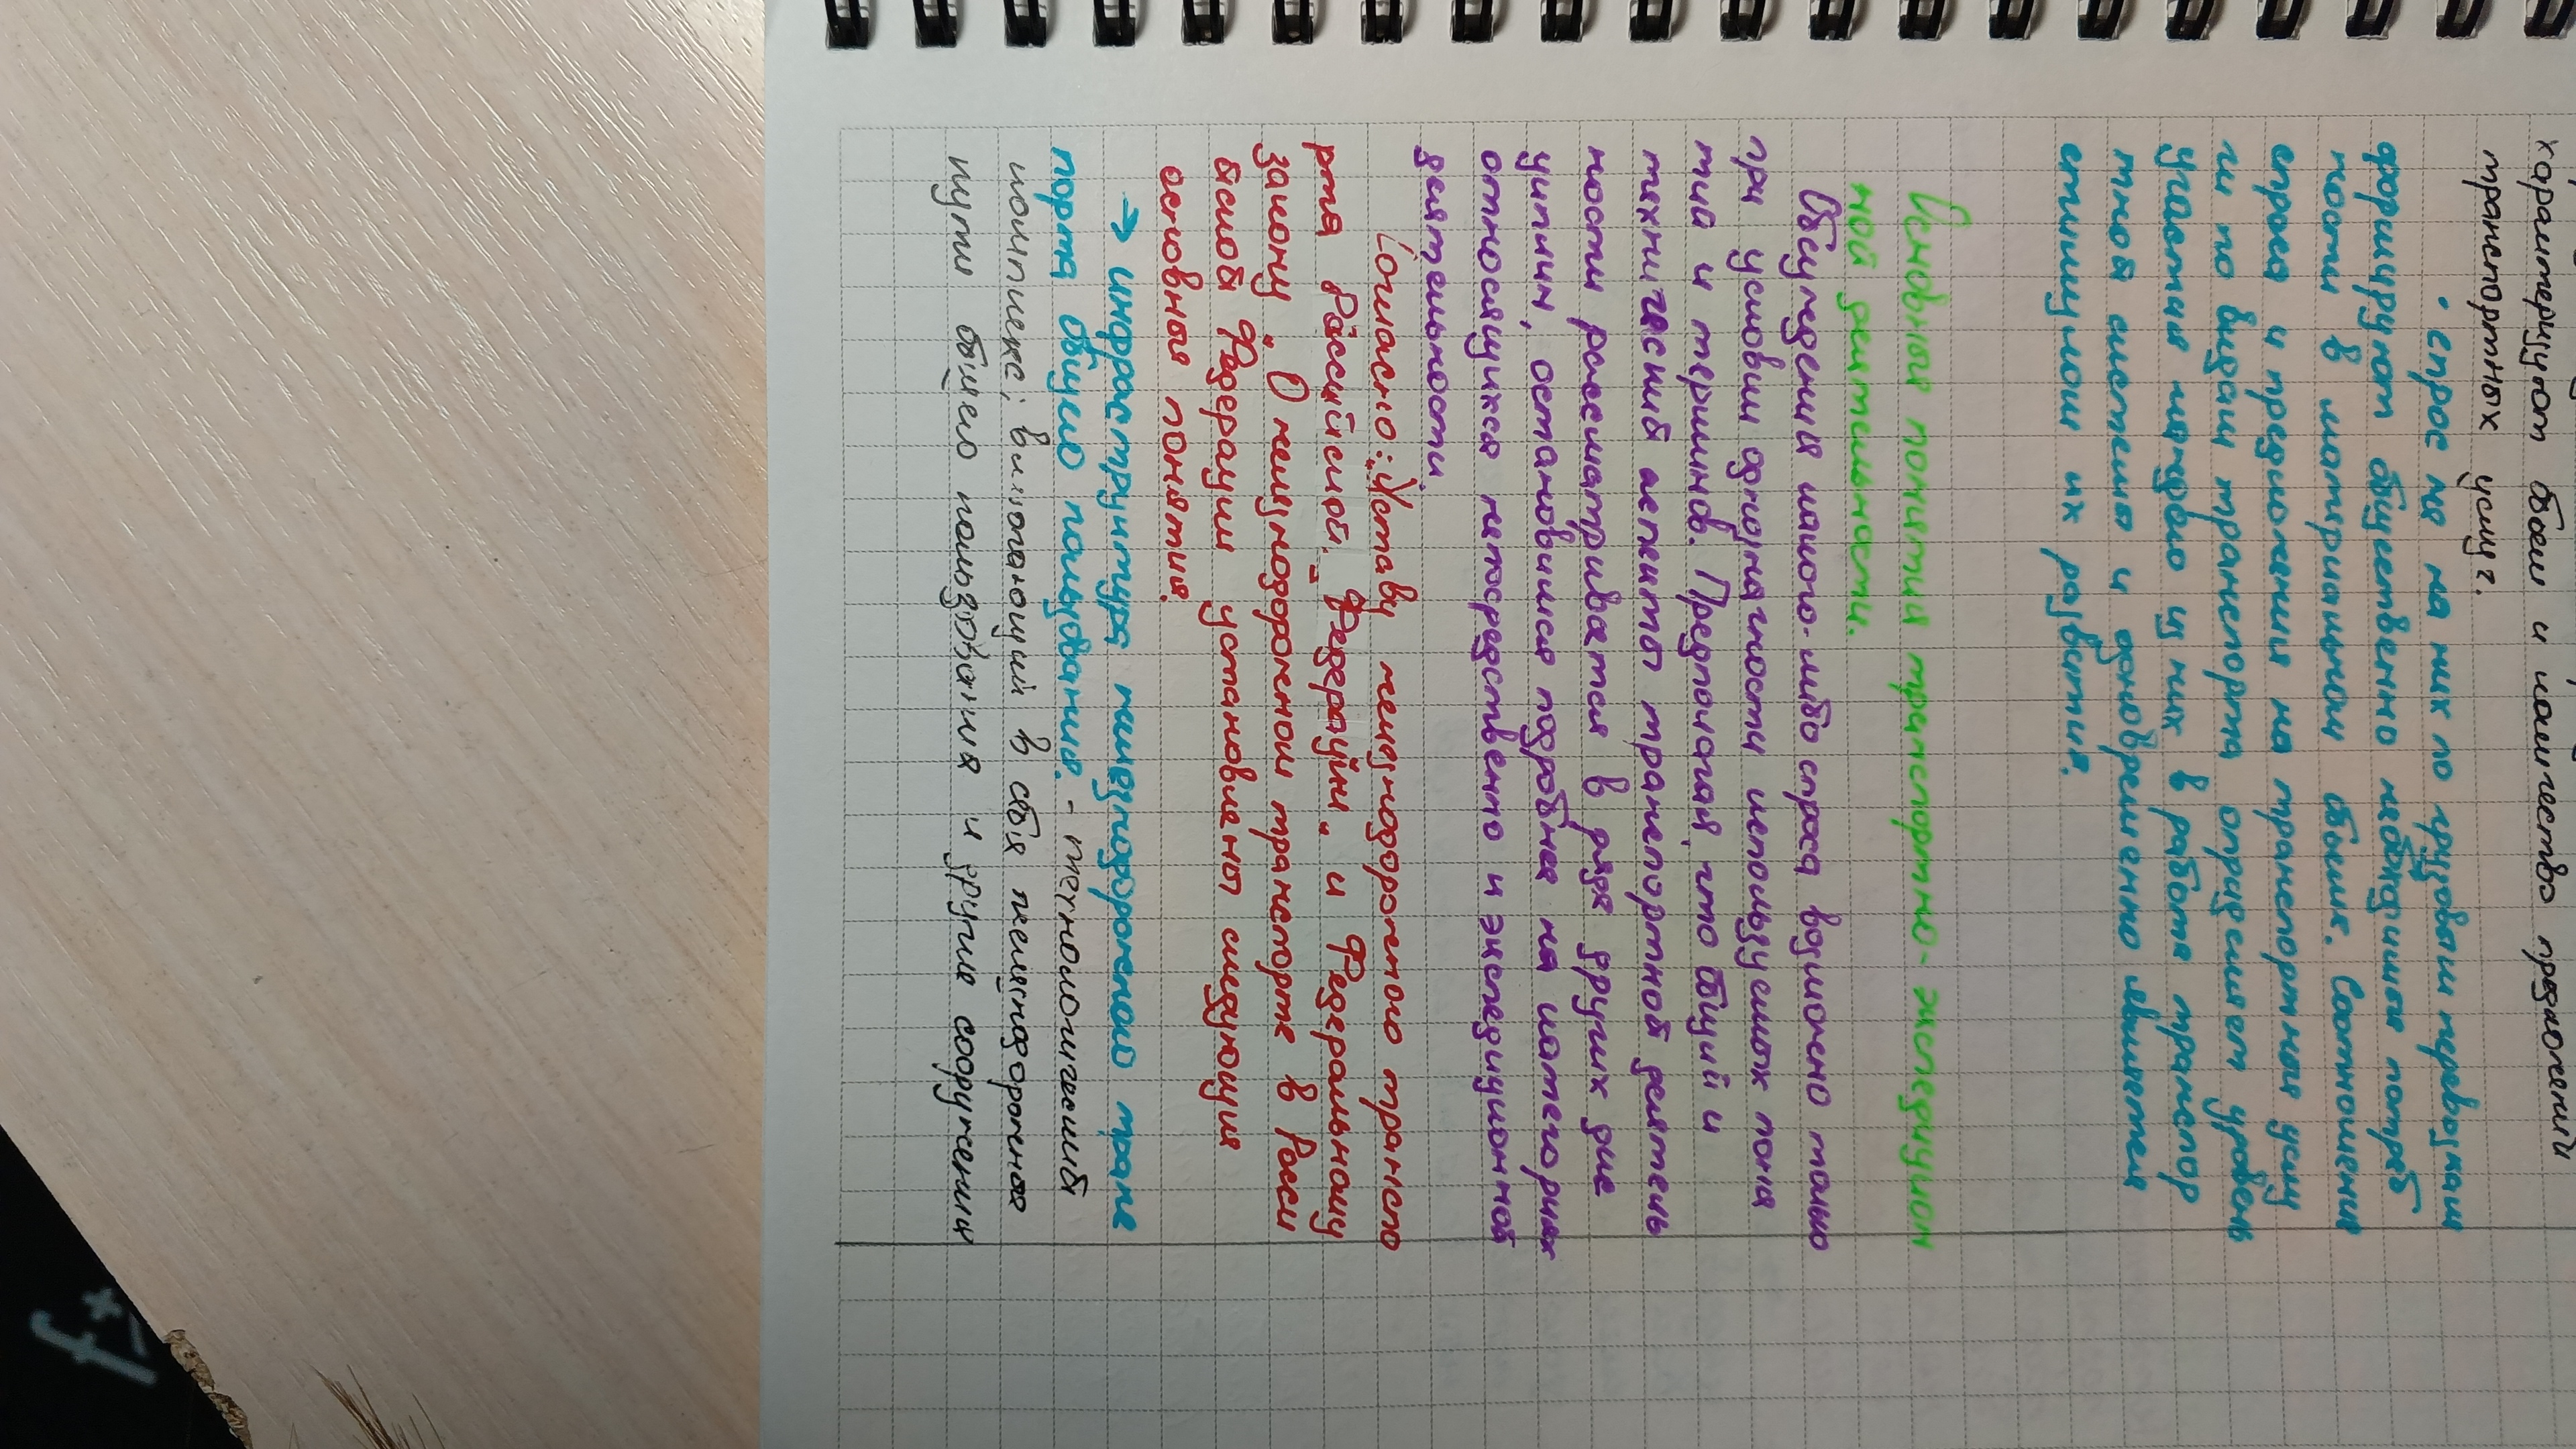 характеризуют объем и количество предложений
транспортных услуг.
• спрос на на них по грузовым перевозкам
формируют общественно необходимые потреб
ности в материальном обмене. Соотношения
спроса и предложения на транспортных услу
ги по видам транспорта определяет уровень
участия каждого из них в работе транспор
тной системы и одновременно является
стимулом их развития.
Основные понятия транспортно-экспедицион
ной деятельности.
Обсуждения какого-либо спроса возможно только
при условии однозначности используемых поня
тий и терминов. Предполагая, что общий и
технический аспекты транспортной деятель
ности рассматриваются в ряде других дис
циплин, остановимся подробнее на категориях
относящихся непосредственно к экспедиционной
деятельности.
Согласно: "Уставу железнодорожного транспо
рта Российской Федерации" и Федеральному
закону "О железнодорожном транспорте в Росси
йской Федерации установлены следующие
основные понятия.
→ инфраструктура железнодорожного транс
порта общего пользования. - технологический
комплекс, включающий в себя железнодорожная
пути общего пользования и другие сооружении